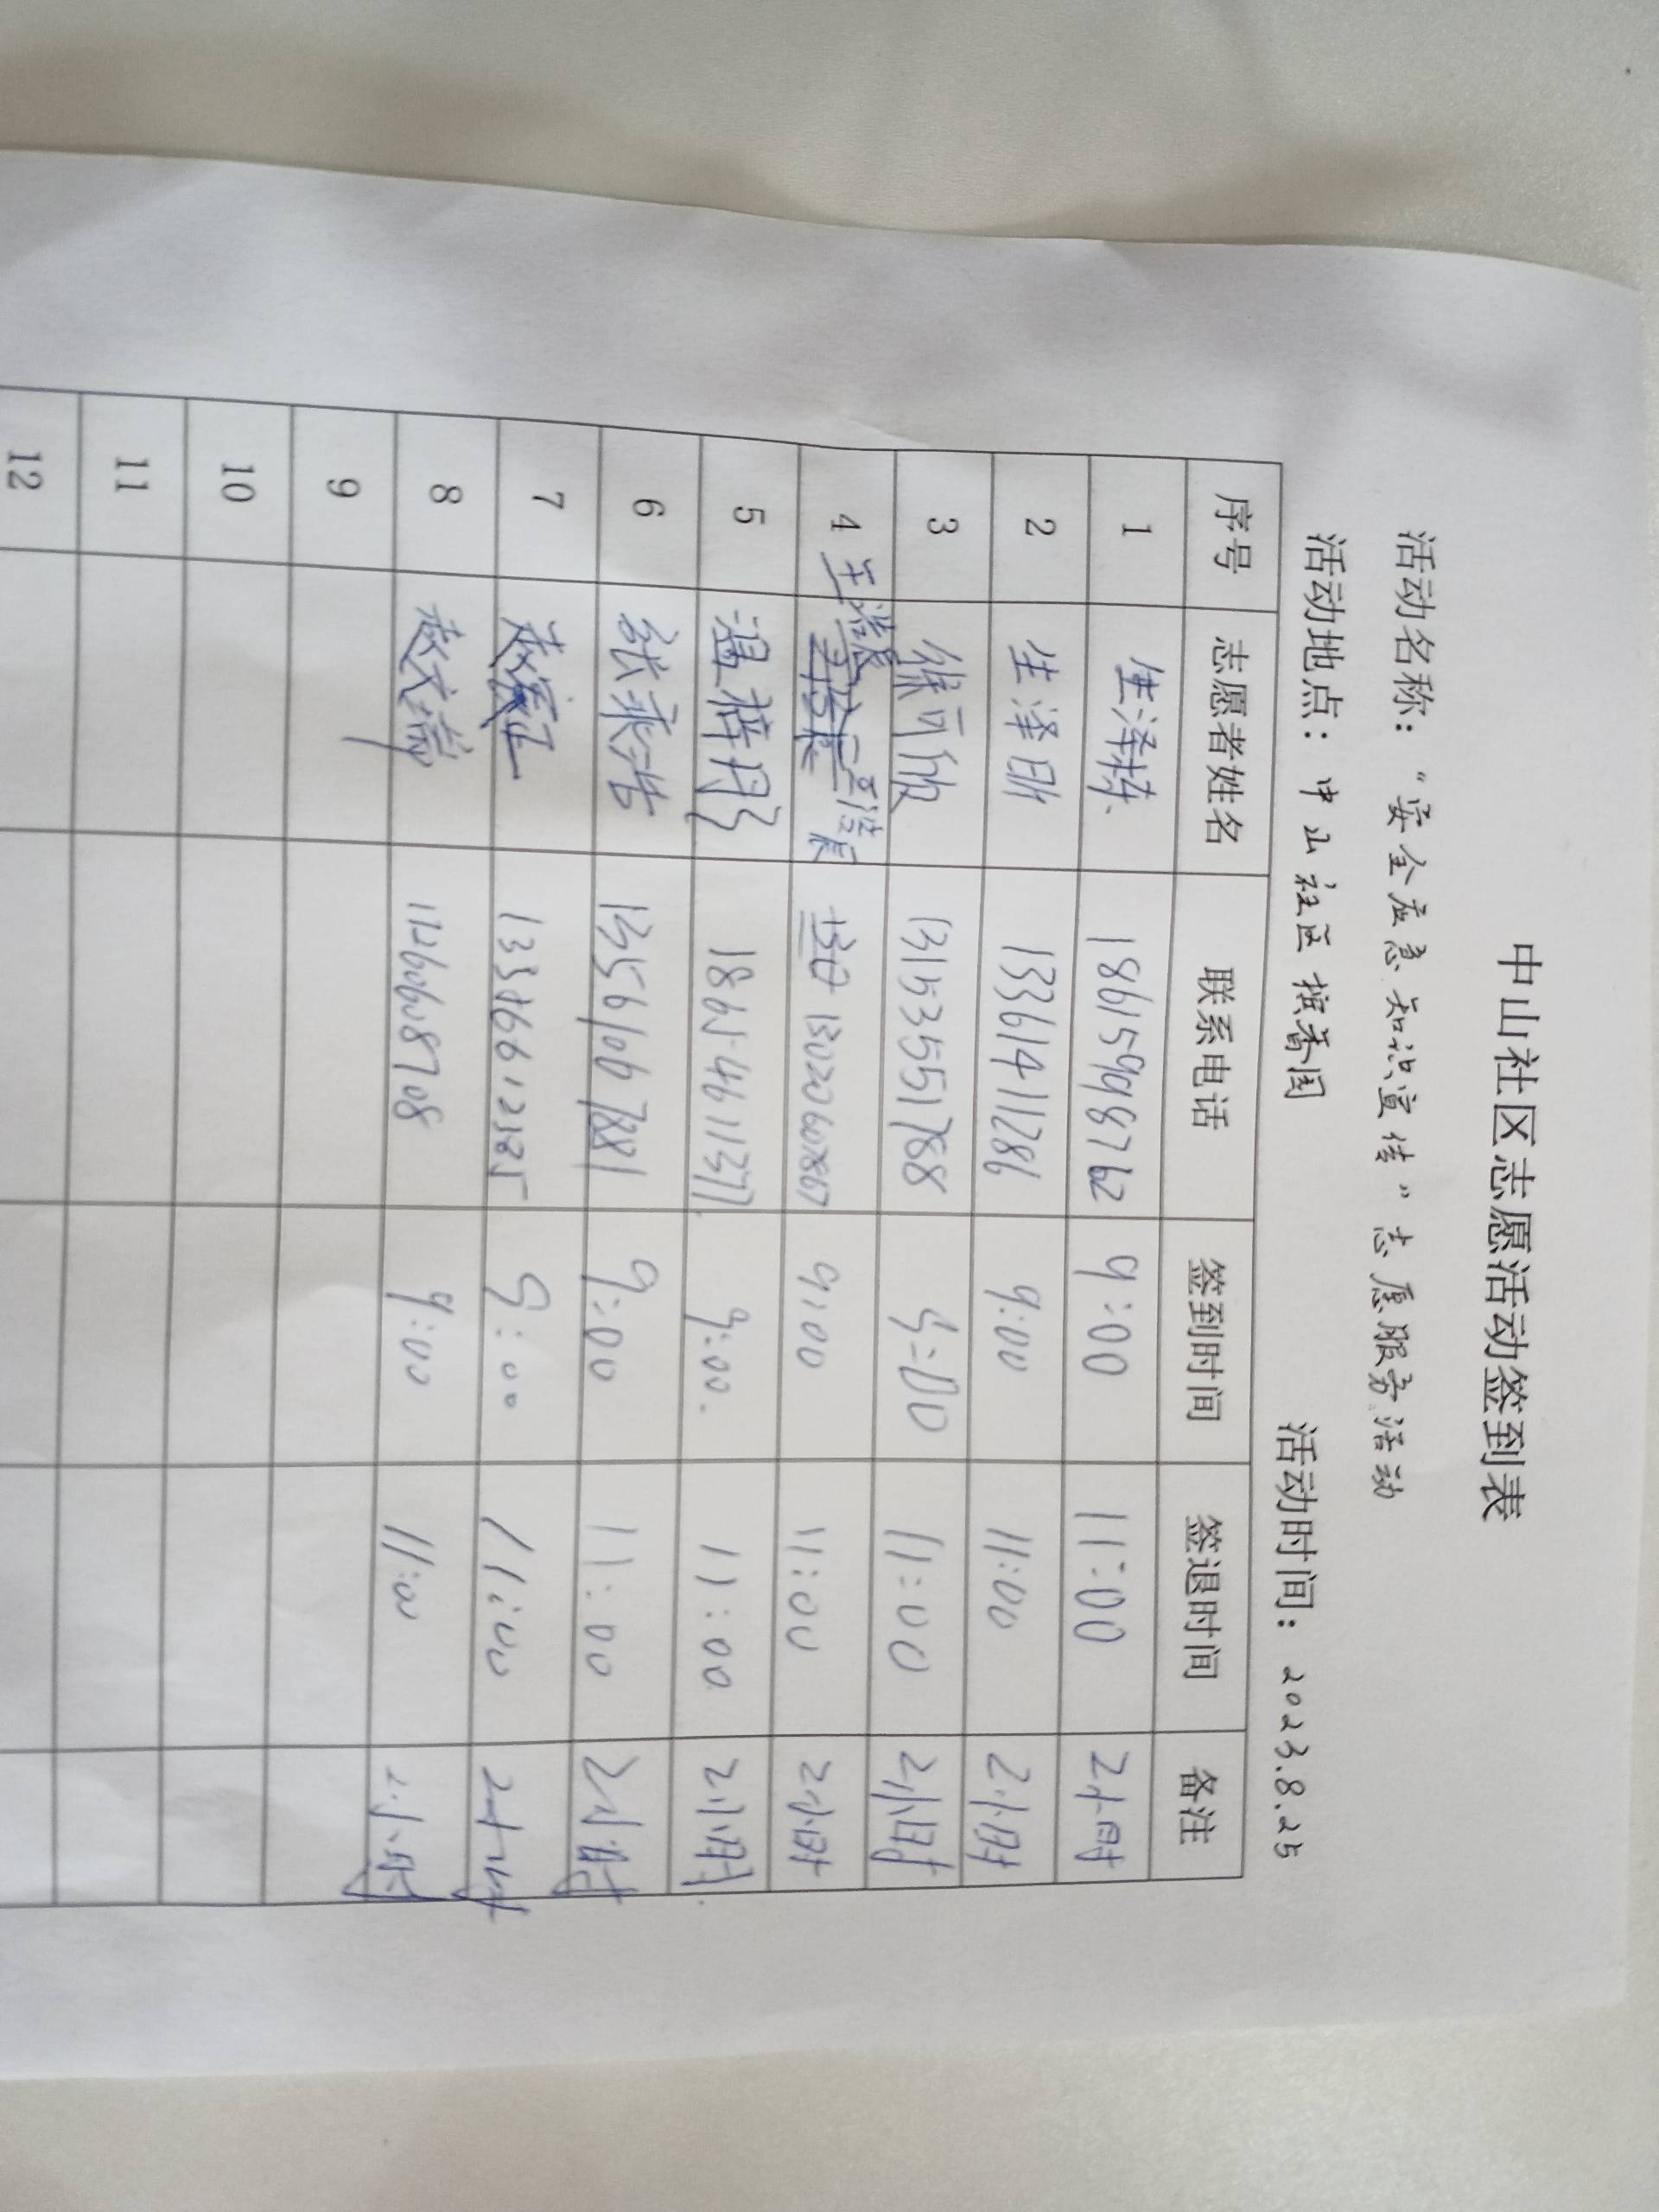 中山社区志愿活动签到表
活动名称：“安全应急知识宣传”志愿服务活动
活动地点：中山社区槟香园 活动时间：2023.8.25
序号 志愿者姓名 联系电话 签到时间 签退时间 备注
1 生泽栋 18615998762 9:00 11:00 2小时
2 生泽明 13361411286 9:00 11:00 2小时
3 徐可欣 13153551788 9:00 11:00 2小时
4 13020607867 9:00 11:00 2小时
5 温梓彤 9:00 11:00 2小时
6 张乘浩 13561067881 9:00 11:00 2小时
7 9:00 11:00 2小时
8 赵文瑞 9:00 11:00 2小时
9
10
11
12